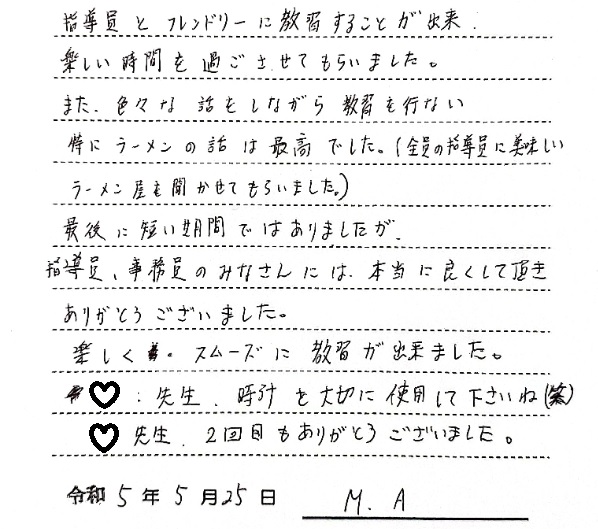 指導員とフレンドリーに教習することが出来、
楽しい時間を過ごさせてもらいました。
また、色々な話をしながら教習を行ない
特にラーメンの話は最高でした。(全員の指導員に美味しい
ラーメン屋を聞かせてもらいました。)
最後に短い期間ではありましたが、
指導員、事務員のみなさんには、本当に良くして頂き
ありがとうございました。
楽しく・スムーズに教習が出来ました。
♡:先生、時計を大切に使用して下さいね(笑)
♡先生、2回目もありがとうございました。
令和5年5月25日 M.A